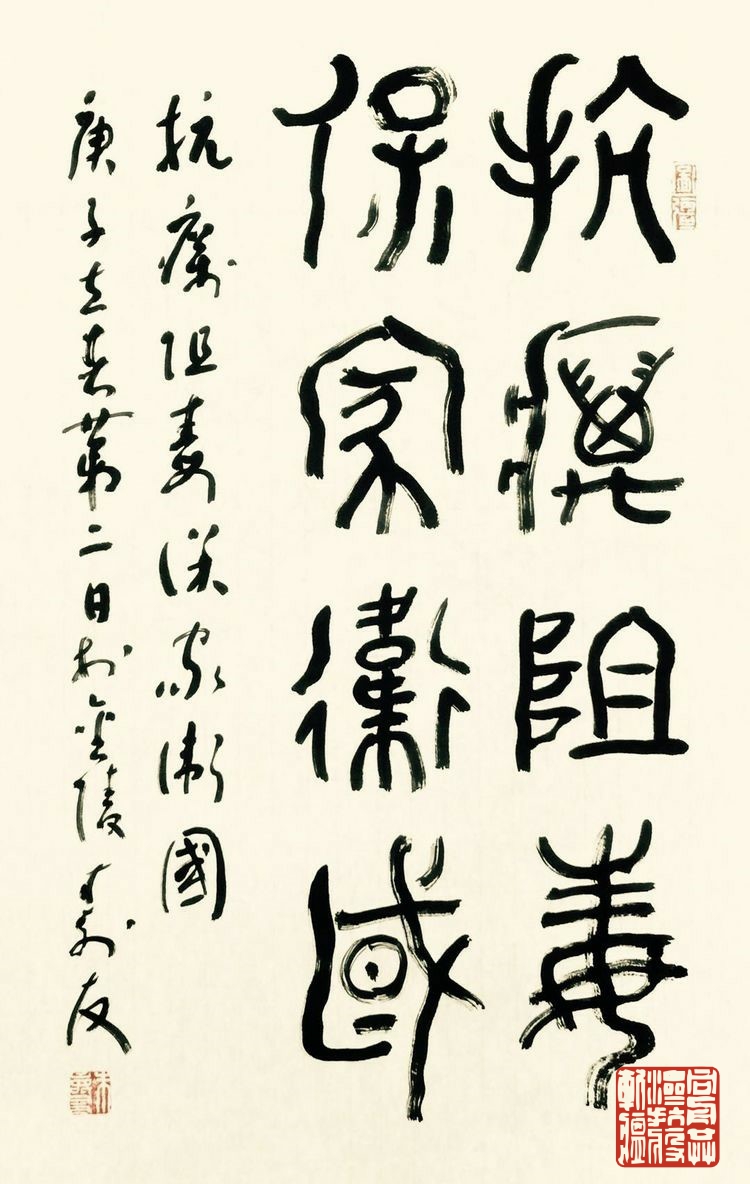 抗癘阻毒
保家衛國
抗癘阻毒保家衛國
庚子立春第二日於金陵壽友